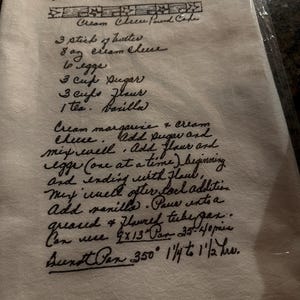 Cream Cheese Pound Cake
3 sticks of butter
8 oz cream cheese
6 eggs
3 cup sugar
3 cups flour
1 tea. vanilla
Cream margarine & cream
cheese. Add sugar and
mix well. Add flour and
eggs (one at a time) beginning
and ending with flour,
Mix well after each addition
Add vanilla. Pour into a
greased & floured tube pan.
Can use 9x13" Pan 35
Bundt Pan 350° 1 1/4 to 1 1/2 hrs.